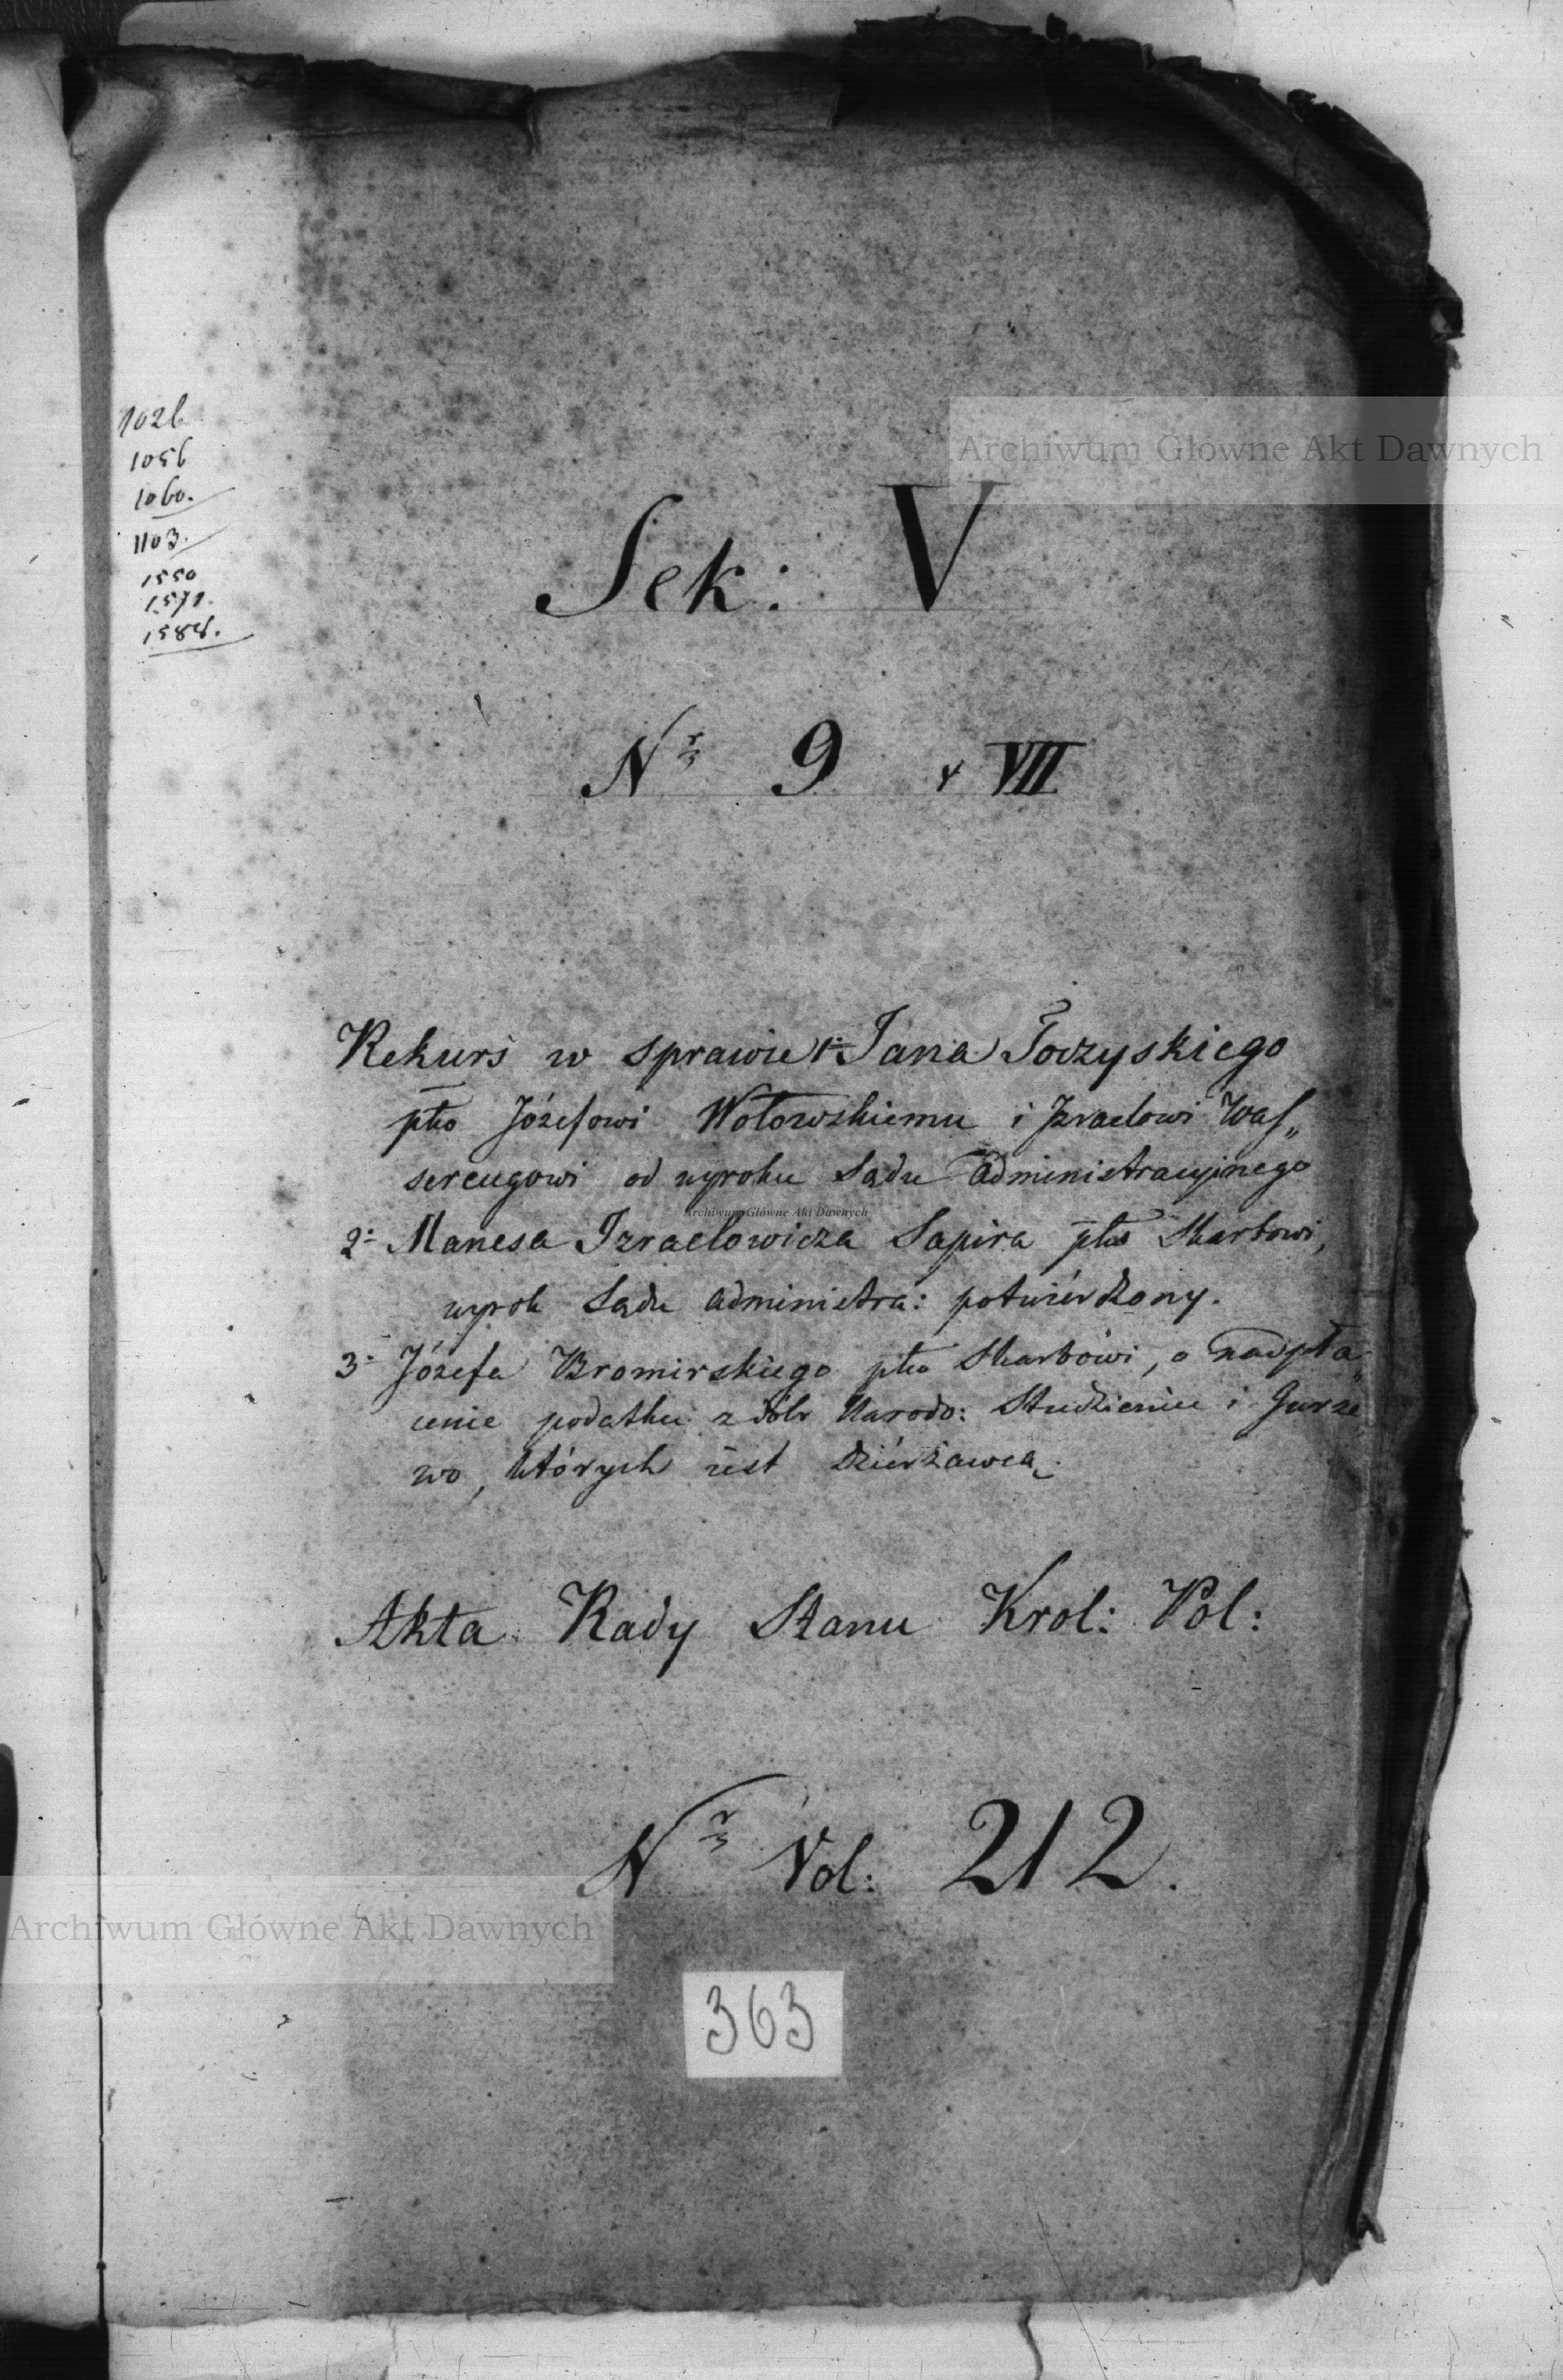 1026
1056
1060.
1103.
1550
1571.
1588.
Archiwum Główne Akt Dawnych
Sek: V
Nr 9 v VII
Rekurs w sprawie 1: Jana Toczyskiego
pko Józefowi Wołowskiemu i Izraelowi Was„
sercugowi od wyroku Sądu Administracyjnego
Archiwum Główne Akt Dawnych
2: Manesa Izraelowicza Sapira pko Skarbowi,
wyrok Sądu administra: potwierdzony.
3: Józefa Bromirskiego pko Skarbowi, o nadpła„
cenie podatku z dóbr Narodo: Studzieniec i Gurze
wo, których iest Dzierżawcą.
Akta Rady Stanu Krol: Pol:
Nr Vol: 212.
Archiwum Główne Akt Dawnych
363